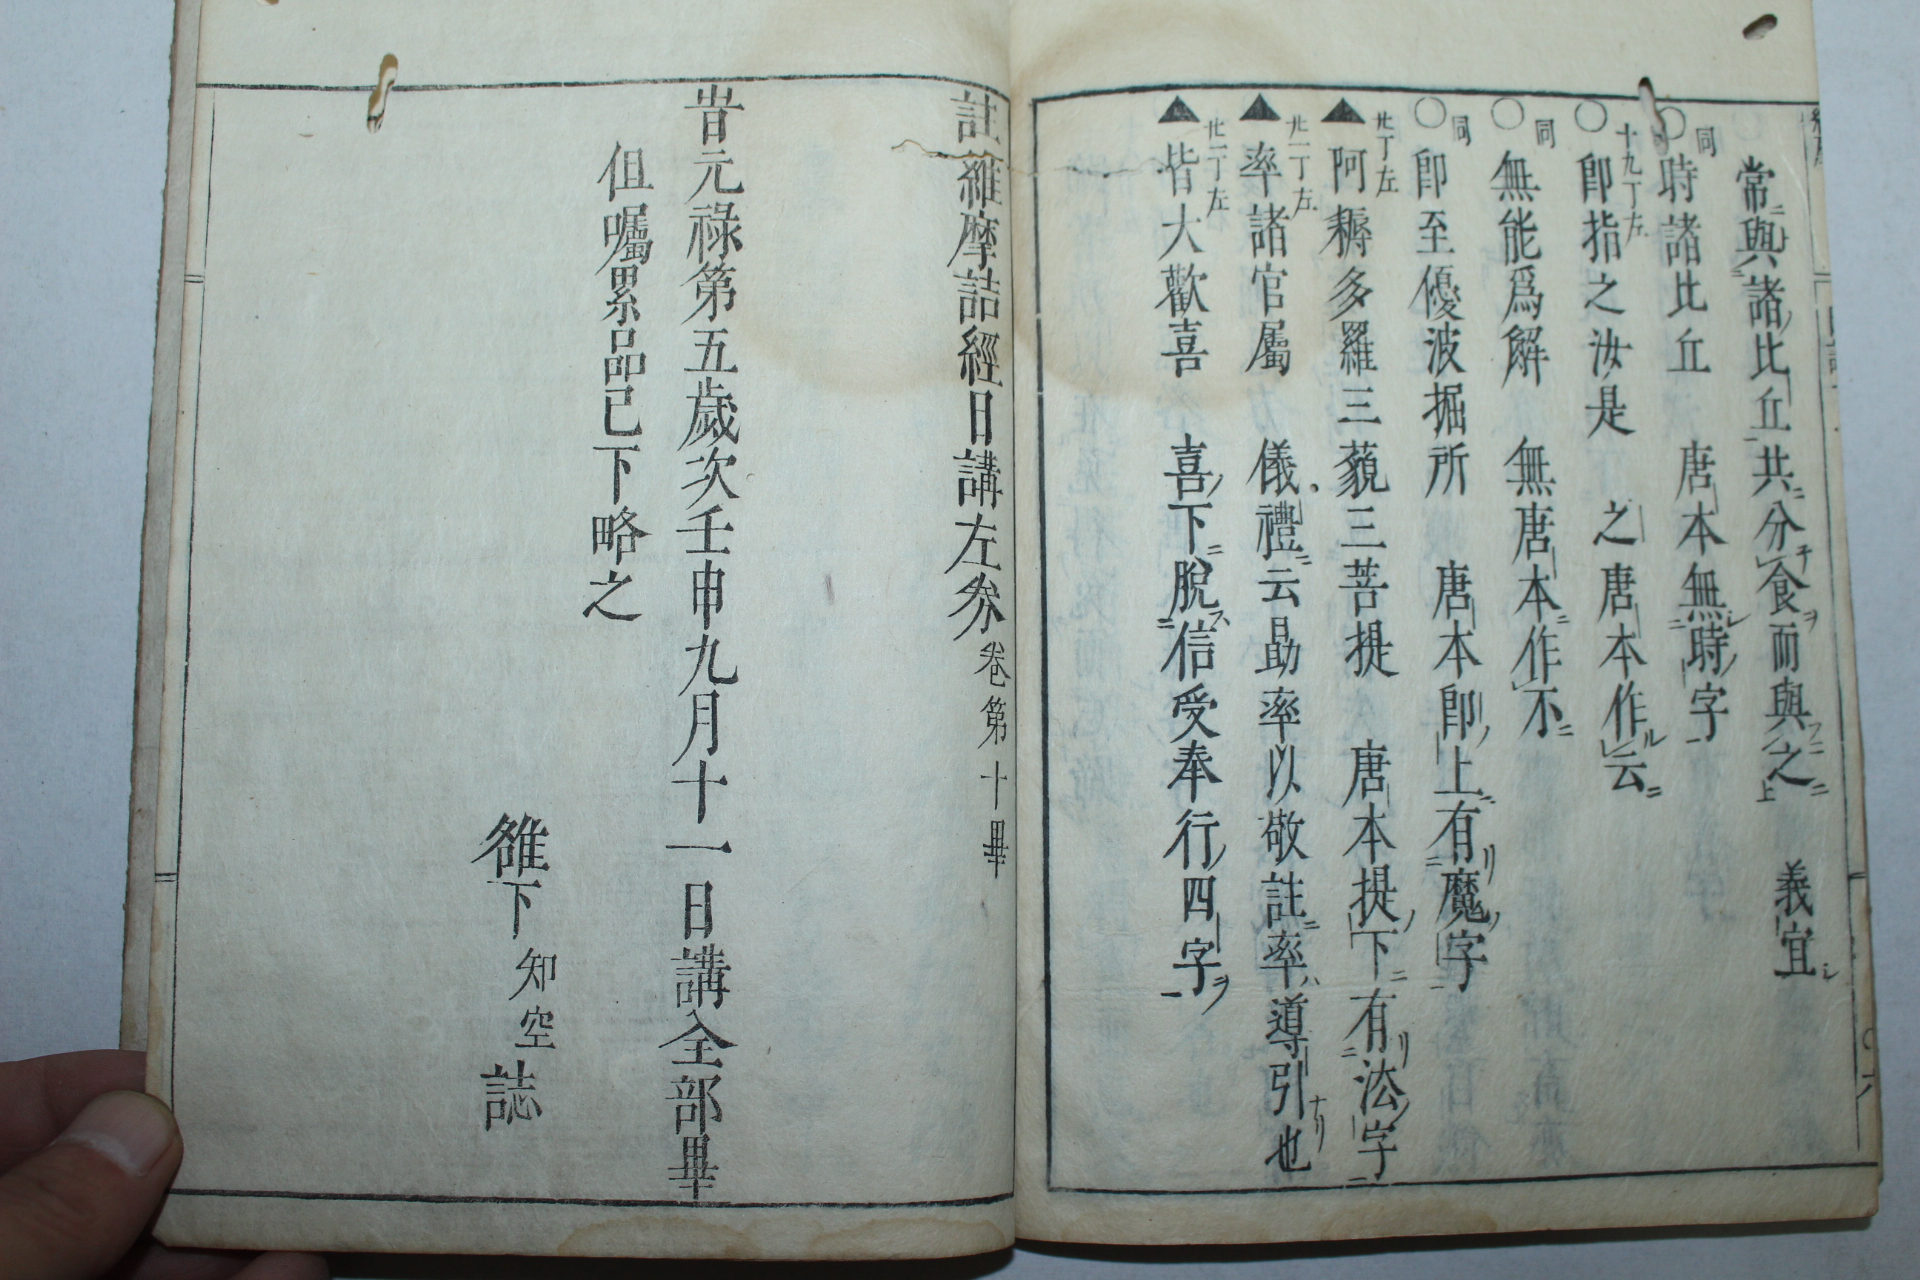 常與諸比丘共分食而與之上 義宜
○同 時諸比丘 唐本無時字
○十九丁左 即指之汝是 之唐本作云
○同 無能爲解 無唐本作不
○同 即至優波掘所 唐本即上有魔字
▲廿丁左 阿耨多羅三藐三菩提 唐本提下有法字
▲廿一丁左 率諸官屬 儀禮云助率以敬註率導引也
▲廿二丁左 皆大歡喜 喜下脫信受奉行四字
註維摩詰經日講左券 卷第十畢
旹元祿第五歲次壬申九月十一日講全部畢
但囑累品已下略之
雒下 知空 誌